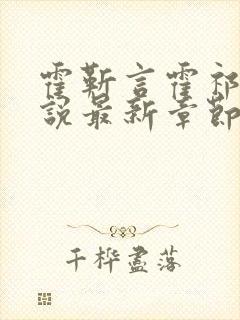 霍靳言霍祁
說最新章節
千樺盡落